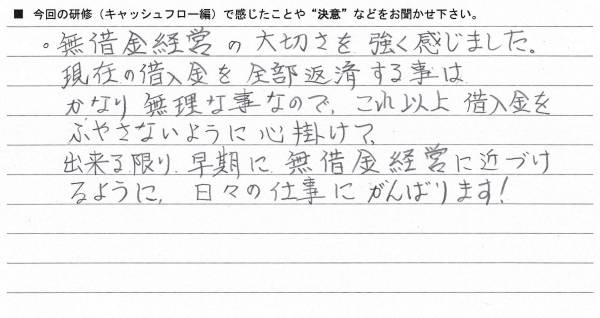 ■ 今回の研修（キャッシュフロー編）で感じたことや“決意”などをお聞かせ下さい。
。無借金経営の大切さを強く感じました。
現在の借入金を全部返済する事は
かなり無理な事なので、これ以上借入金を
ふやさないように心掛けて、
出来る限り、早期に無借金経営に近づけ
るように、日々の仕事にがんばります!